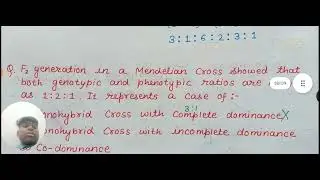 3:1:6:2:3:1
Q. F₂ generation in a Mendelian Cross showed that
both genotypic and phenotypic ratios are
as 1:2:1. It represents a case of :-
3:1
onohybrid Cross with Complete dominance X
onohybrid Cross with incomplete dominance
Co-dominance